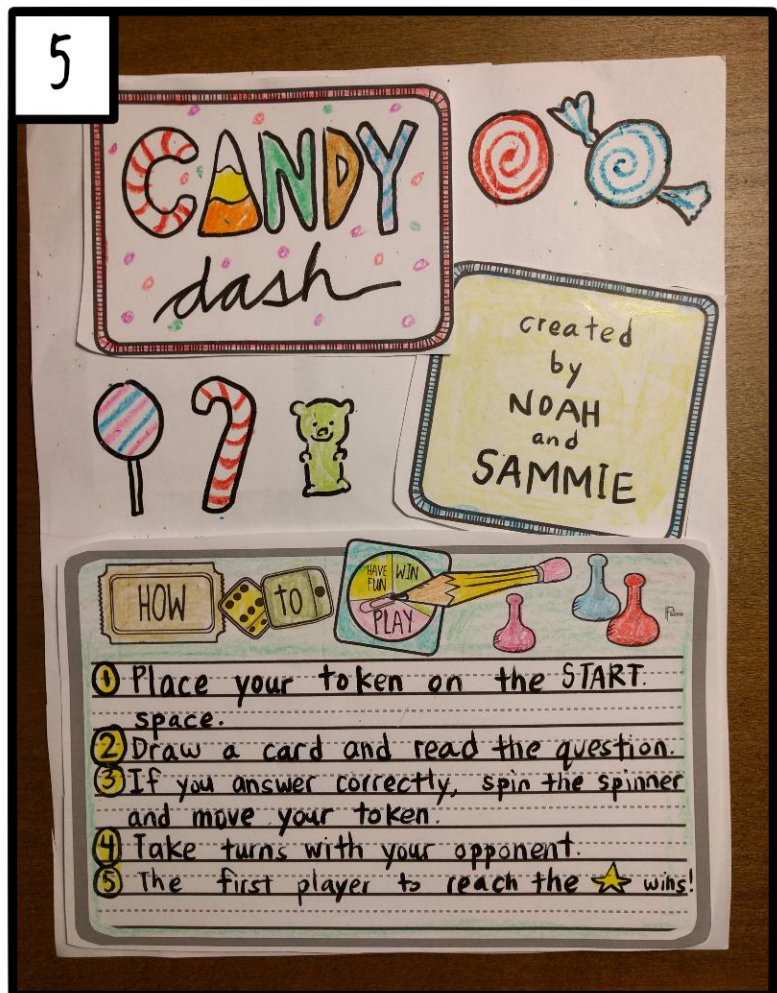 5
CANDY
dash
created
by
NOAH
and
SAMMIE
HOW to
HAVE FUN
WIN
PLAY
1 Place your token on the START.
space.
2 Draw a card and read the question.
3 If you answer correctly, spin the spinner
and move your token.
4 Take turns with your opponent.
5 The first player to reach the ☆ wins!